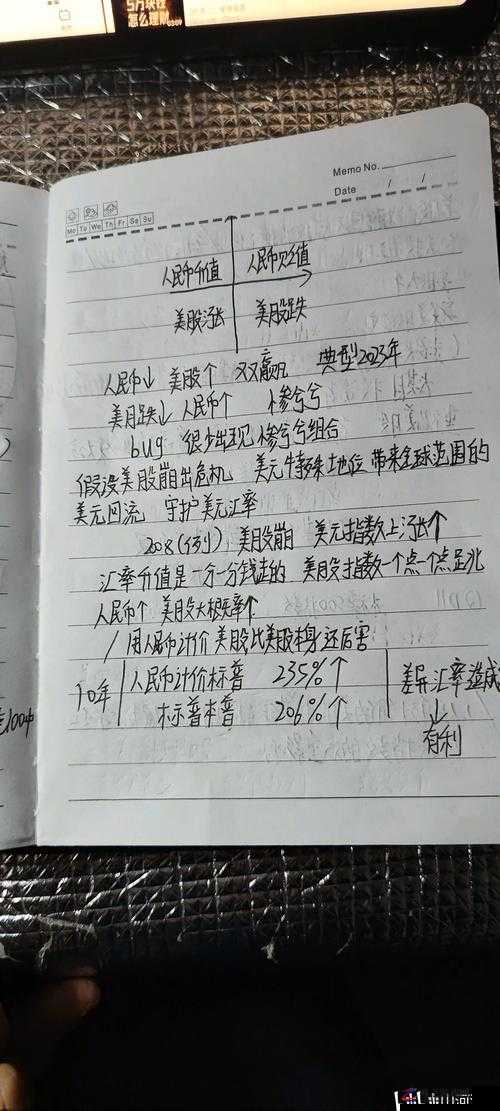 怎么理财
Memo No.
Date / /
Mo Tu We Th Fr Sa Su
人民币升值 人民币贬值
美股涨 美股跌
人民币↓ 美股个 双双赢 典型2023年
美月跌↓ 人民币个 惨兮兮
bug 很少出现惨兮兮组合
假设美股崩出危机 美元特殊地位 带来全球范围的
美元回流 守护美元汇率
208(例) 美股崩 美元指数上涨↑
汇率价值是一分一分钱走的 美股指数一个点一个点足兆
人民币个 美股大概率↑
/ 用人民币计价 美股比美股本身还厉害
10年 人民币计价标普 235%↑ 差异汇率造成
标普本普 206%↑ ↓
有利